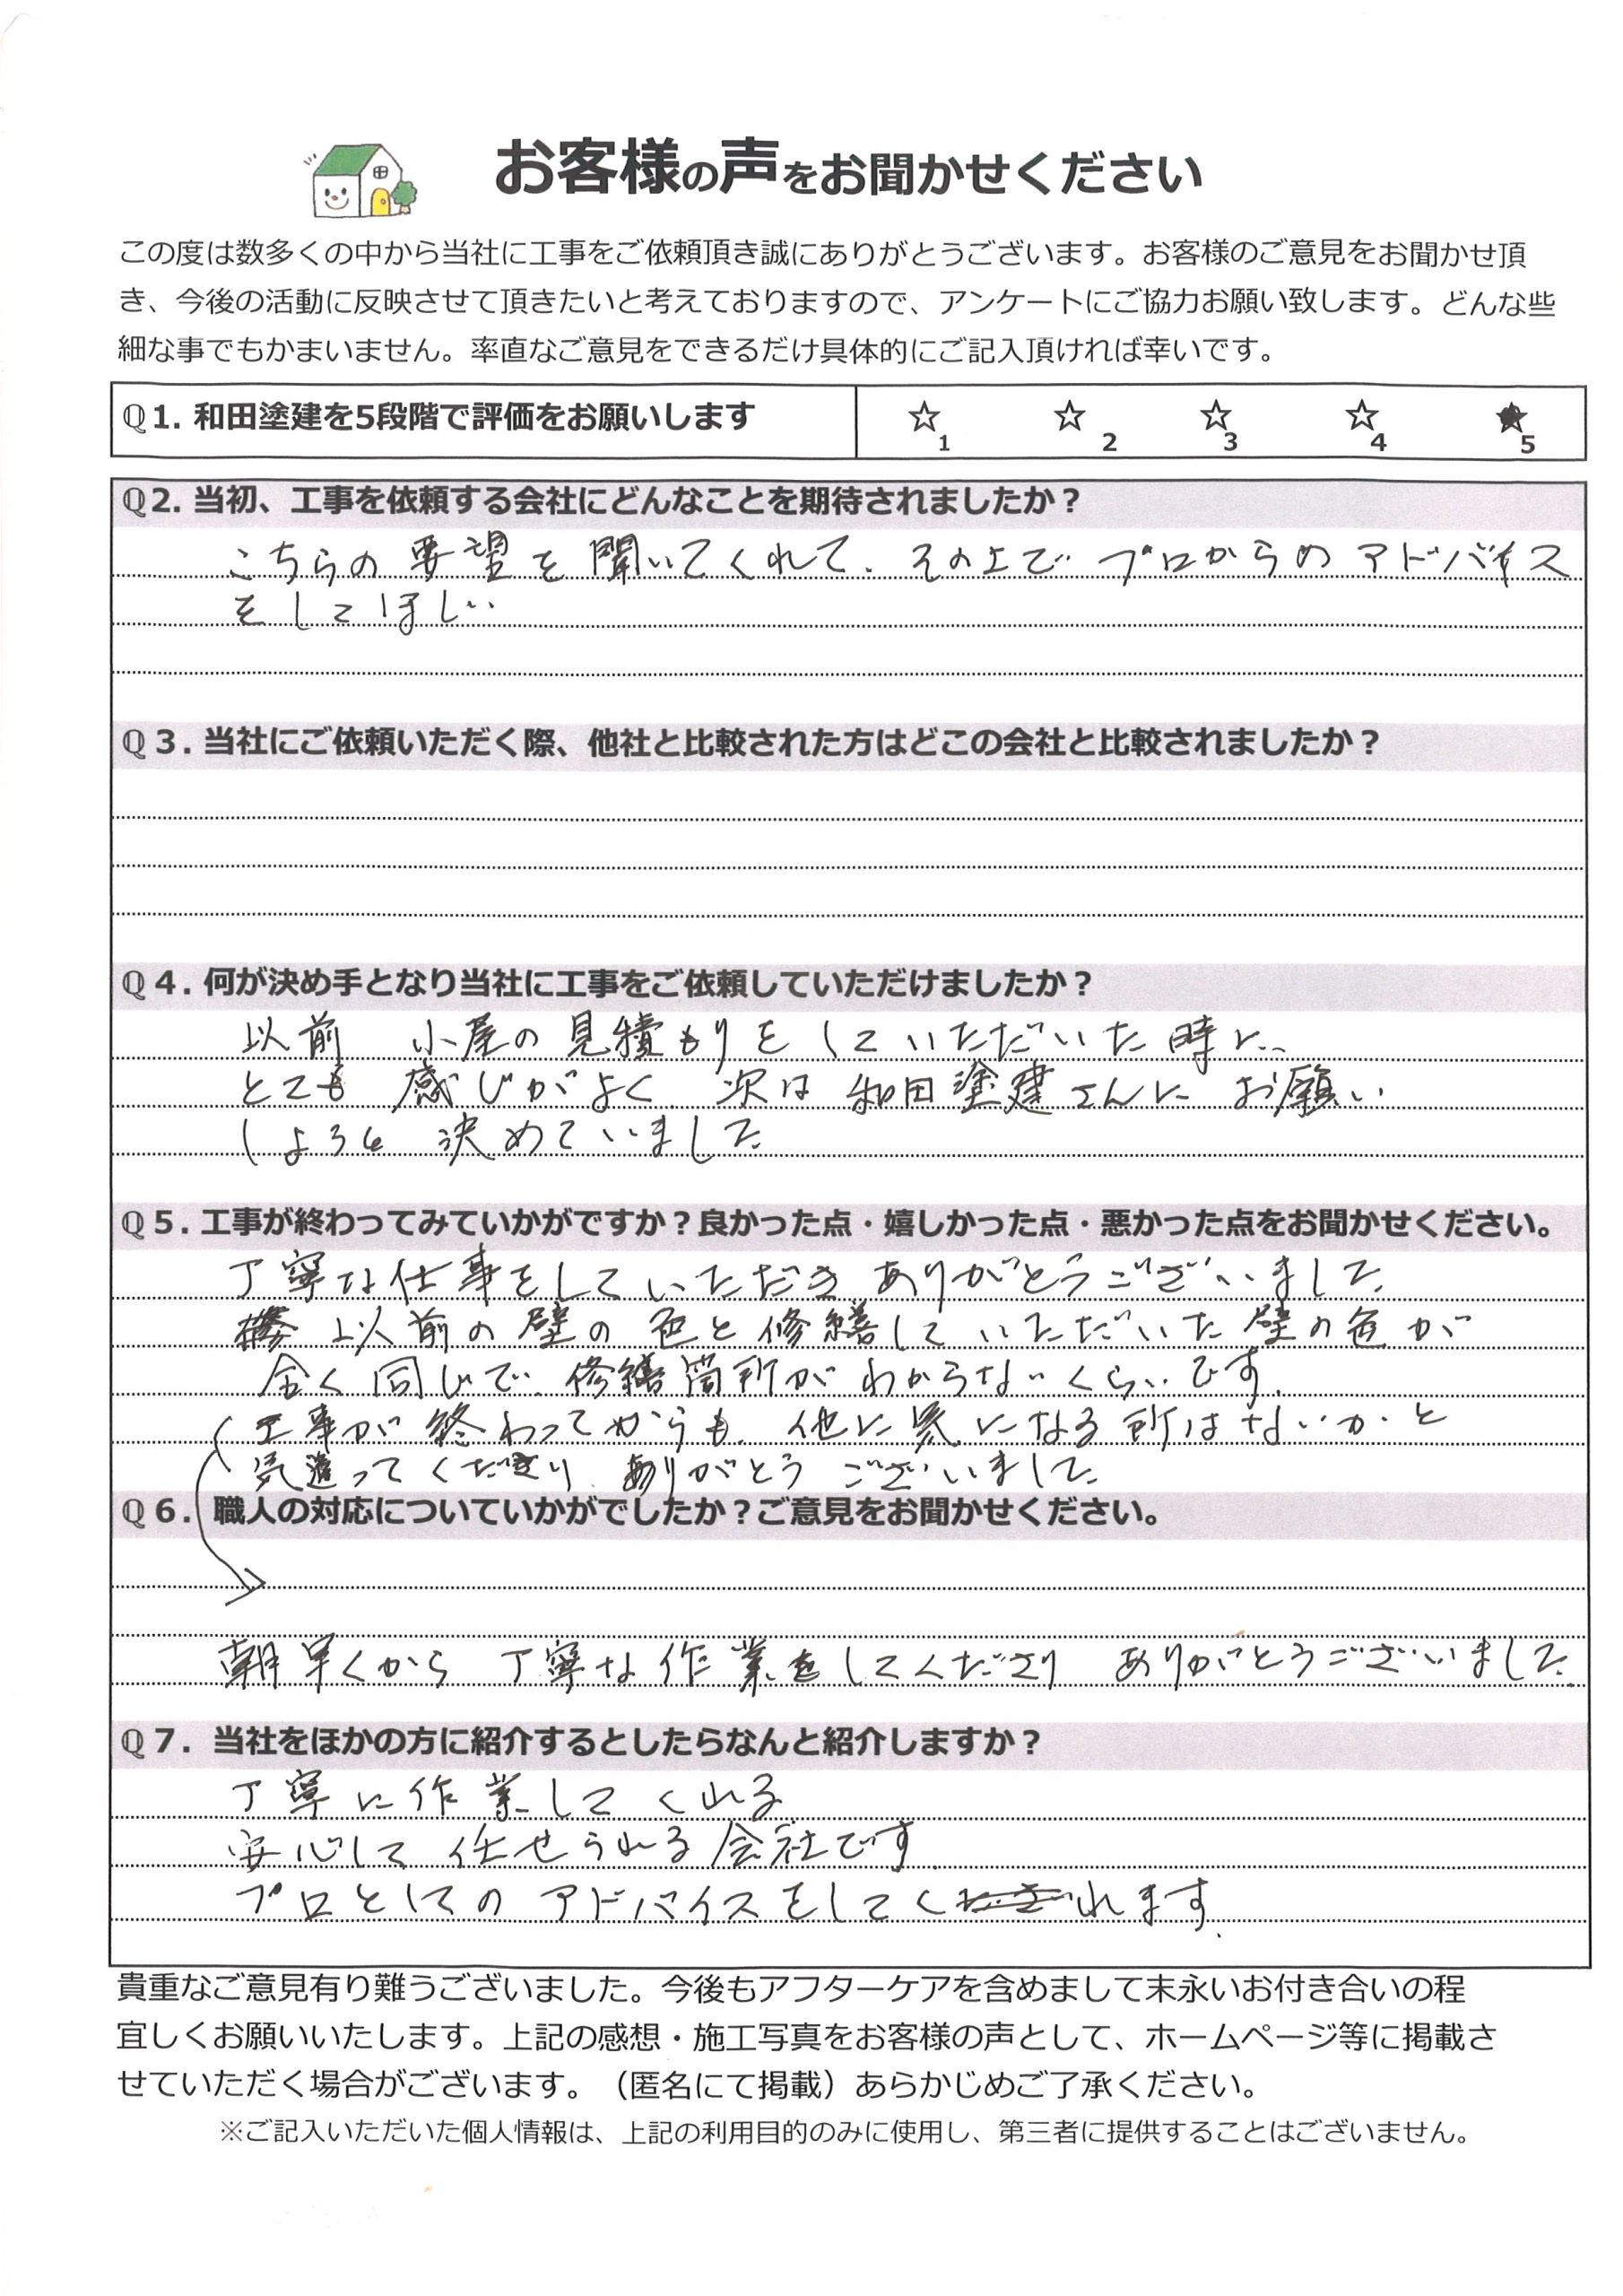 お客様の声をお聞かせください
この度は数多くの中から当社に工事をご依頼頂き誠にありがとうございます。お客様のご意見をお聞かせ頂
き、今後の活動に反映させて頂きたいと考えておりますので、アンケートにご協力お願い致します。どんな些
細な事でもかまいません。率直なご意見をできるだけ具体的にご記入頂ければ幸いです。
Q1. 和田塗建を5段階で評価をお願いします ☆1 ☆2 ☆3 ☆4 ★5
Q2. 当初、工事を依頼する会社にどんなことを期待されましたか？
こちらの要望を聞いてくれて、その上で プロからのアドバイス
をしてほしい
Q3. 当社にご依頼いただく際、他社と比較された方はどこの会社と比較されましたか？
Q4. 何が決め手となり当社に工事をご依頼していただけましたか？
以前 小屋の見積もりをしていただいた時に
とても感じがよく、次は和田塗建さんにお願い
しようと決めていました
Q5. 工事が終わってみていかがですか？良かった点・嬉しかった点・悪かった点をお聞かせください。
丁寧な仕事をしていただき ありがとうございました
以前の壁の色と修繕していただいた壁の色が
全く同じで、修繕箇所がわからないくらいです。
工事が終わってからも、他に気になる所はないか、と
気遣ってくださり、ありがとうございました
Q6. 職人の対応についていかがでしたか？ご意見をお聞かせください。
朝早くから 丁寧な作業をしてくださり ありがとうございました
Q7. 当社をほかの方に紹介するとしたらなんと紹介しますか？
丁寧に作業してくれる
安心して任せられる会社です
プロとしてのアドバイスをしてくれます。
貴重なご意見有り難うございました。今後もアフターケアを含めまして末永いお付き合いの程
宜しくお願いいたします。上記の感想・施工写真をお客様の声として、ホームページ等に掲載さ
せていただく場合がございます。（匿名にて掲載）あらかじめご了承ください。
※ご記入いただいた個人情報は、上記の利用目的のみに使用し、第三者に提供することはございません。